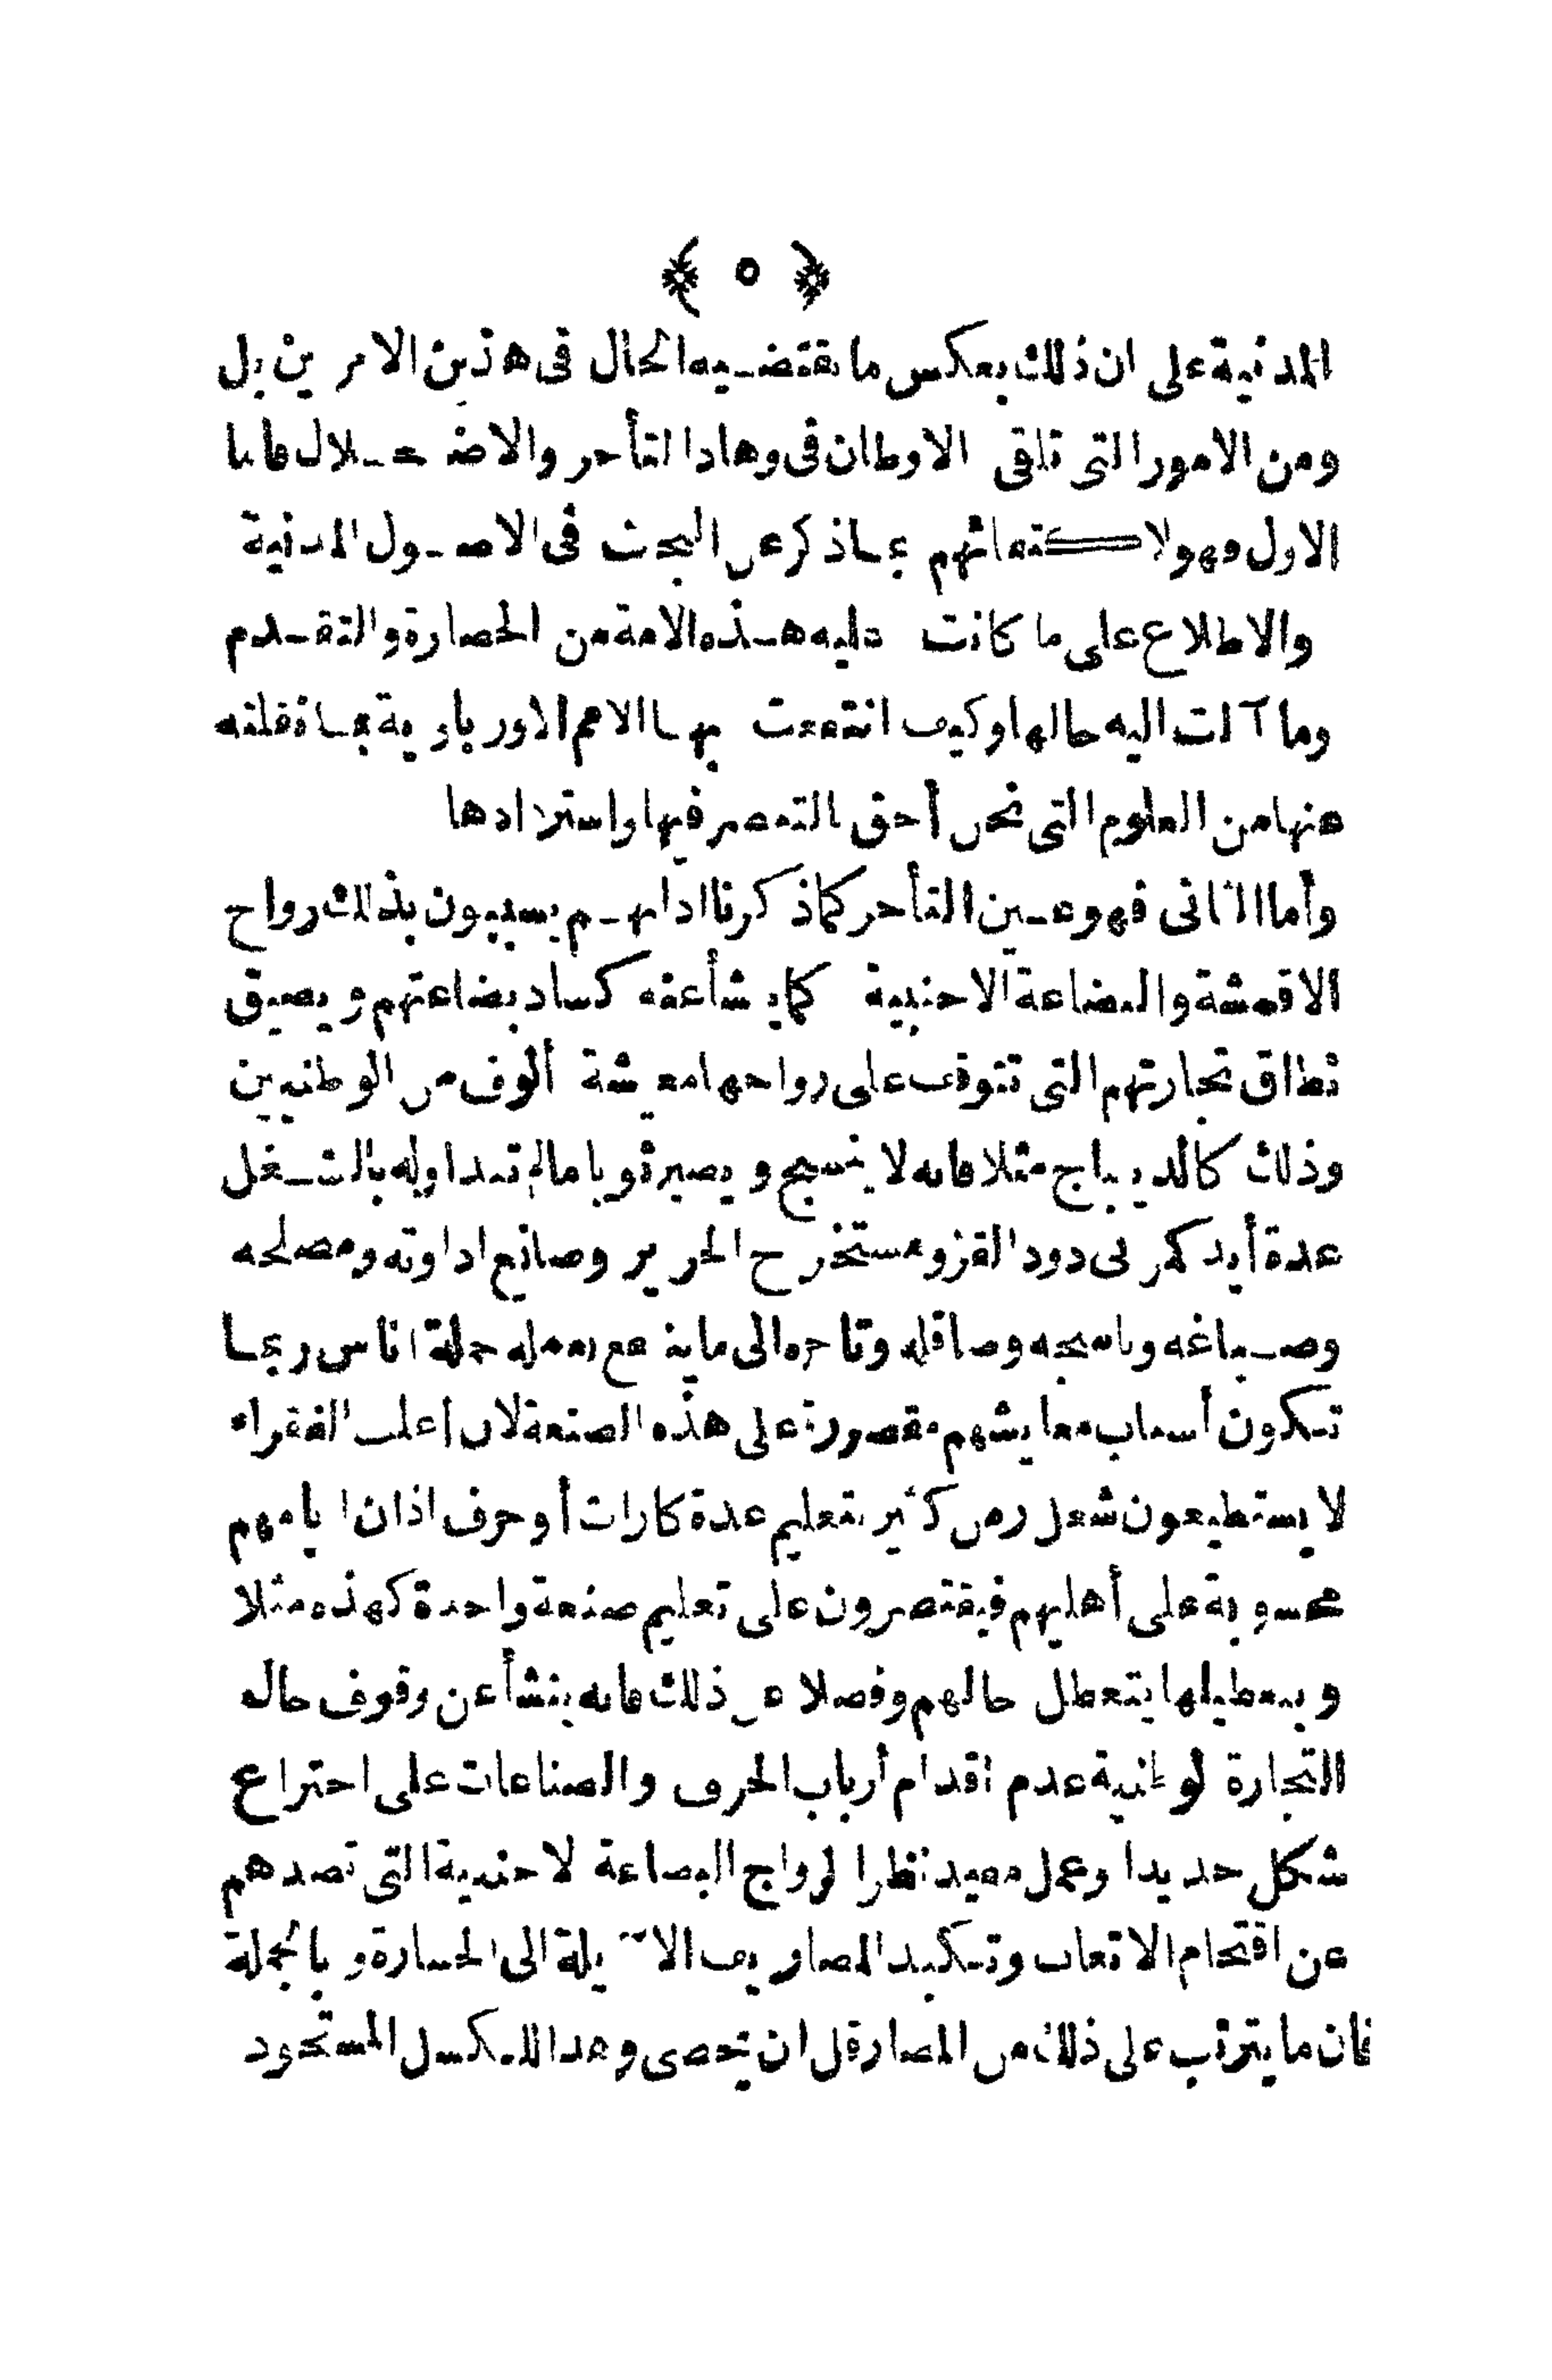 ﴿ ٥ ﴾
المدنية على ان ذلك بعكس ما يقتضيه الحال فى هذين الامرين بل
ومن الامور التى تلقى الاوطان فى وهاد التأخر والاضمحلال فاما
الاول فهو لاكتفائهم بما ذكر عن البحث فى الاصول المدنية
والاطلاع على ما كانت عليه هذه الامة من الحضارة والتقدم
وما آلت اليه حالها وكيف انتفعت بها الامم الاورباوية بما نقلته
عنها من العلوم التى نحن أحق بالتبصر فيها واستردادها
وأما الثانى فهو عين التأخر كما ذكرنا اذ انهم يسببون بذلك رواج
الاقمشة والبضاعة الاجنبية كما ينشأ عنه كساد بضاعتهم ويضيق
نطاق تجارتهم التى تتوقف على رواجها معيشة ألوف من الوطنيين
وذلك كالديباج مثلا فانه لا ينسج ويصير ثوبا ما لم تتداوله بالشغل
عدة أيد كمربى دود القز ومستخرج الحرير وصانع ادواته ومصلحه
وصباغه وناسجه وصاقله وتاجره الى ما ينتفع بعمله جملة اناس ربما
تكون أسباب معايشهم مقصورة على هذه الصنعة لان أغلب الفقراء
لا يستطيعون شغل زمن كثير بتعليم عدة كارات أو حرف اذ ان ايامهم
محسوبة على أهليهم فيقتصرون على تعليم صنعة واحدة كهذه مثلا
وبتعطيلها يتعطل حالهم وفضلا عن ذلك فانه ينشأ عن وقوف حاله
التجارة الوطنية عدم اقدام أرباب الحرف والصناعات على اختراع
شكل جديد او عمل مفيد نظرا لرواج البضاعة الاجنبية التى تصدهم
عن اقتحام الاتعاب وتكبد المصاريف الآيلة الى الخسارة وبالجملة
فان ما يترتب على ذلك من المضار قل ان يحصى وهذا الكسل المستحوذ